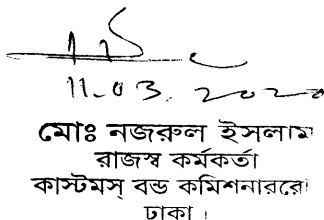 11-03.2020
মোঃ নজরুল ইসলাম
রাজস্ব কর্মকর্তা
কাস্টমস্ বন্ড কমিশনাররে
ঢাকা ।